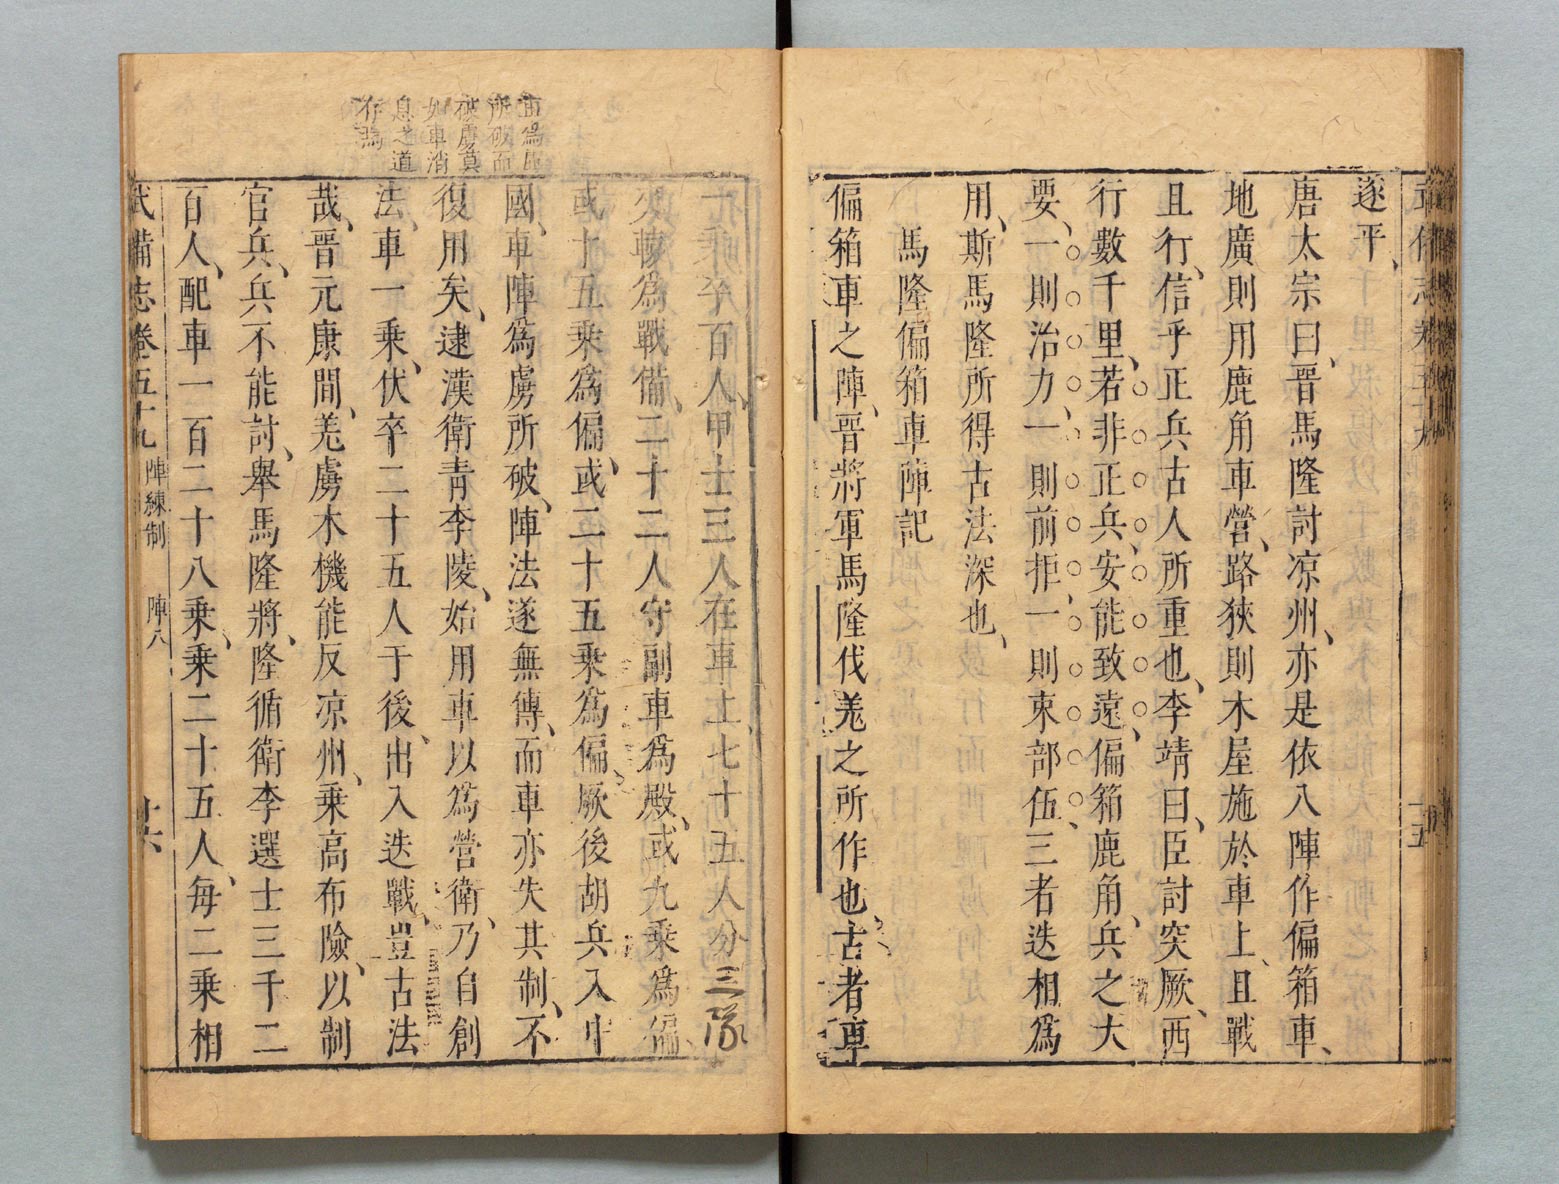 遂平、
唐太宗曰、晉馬隆討凉州、亦是依八陣作偏箱車、
地廣則用鹿角車營、路狹則木屋施於車上、且戰
且行、信乎正兵古人所重也、李靖曰、臣討突厥、西
行數千里、若非正兵、安能致遠、偏箱鹿角、兵之大
要、一則治力、一則前拒、一則束部伍、三者迭相爲
用、斯馬隆所得古法深也、
馬隆偏箱車陣記
偏箱車之陣、晉將軍馬隆伐羌之所作也、古者車
一乘卒百人、甲士三人在車上、七十五人分三隊
夾轅爲戰備、二十二人守副車爲殿、或九乘爲偏、
或十五乘爲偏、或二十五乘爲偏、厥後胡兵入中
國、車陣爲虜所破、陣法遂無傳、而車亦失其制、不
復用矣、逮漢衛青李陵、始用車以爲營衛、乃自創
法、車一乘、伏卒二十五人于後、出入迭戰、豈古法
哉、晉元康間、羌虜木機能反凉州、乘高布險、以制
官兵、兵不能討、舉馬隆將、隆循衛李選士三千二
百人、配車一百二十八乘、乘二十五人、每二乘相
所破而
破虜莫
如車消
息之道
存焉
武備志卷五十九 陣練制 陣八 十六